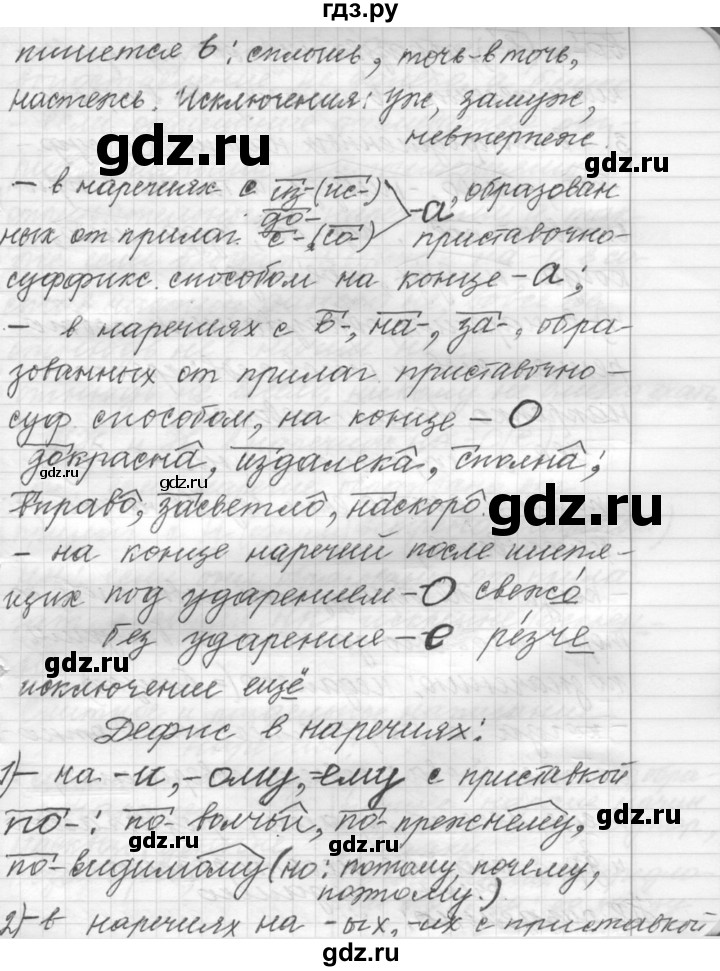 гдз.ру
пишется ь: сплошь, точь-в-точь,
настежь. Исключения: уж, замуж,
невтерпеж.
gdz.ru
- в наречиях с из- (ис-) -а, образован
до-
ных от прилаг. с- (со-) приставочно-
суффикс. способом на конце -а;
- в наречиях с в-, на-, за-, обра-
зованных от прилаг. приставочно-
суф. способом, на конце -О
докрасна, издалека, сполна;
gdz.ru
gdz.ru
вправо, засветло, наскоро
gdz.ru
- на конце наречий после шипя-
щих под ударением -О свежо
без ударения -е резче
gdz.ru
исключении ещё
Дефис в наречиях:
1)- на -и, -ому, -ему с приставкой
по-: по-волчьи, по-прежнему,
gdz.ru
по-видимому (но: потому, почему,
gdz.ru
поэтому.)
2)- в наречиях на -ых, -их с приставкой
gdz.ru